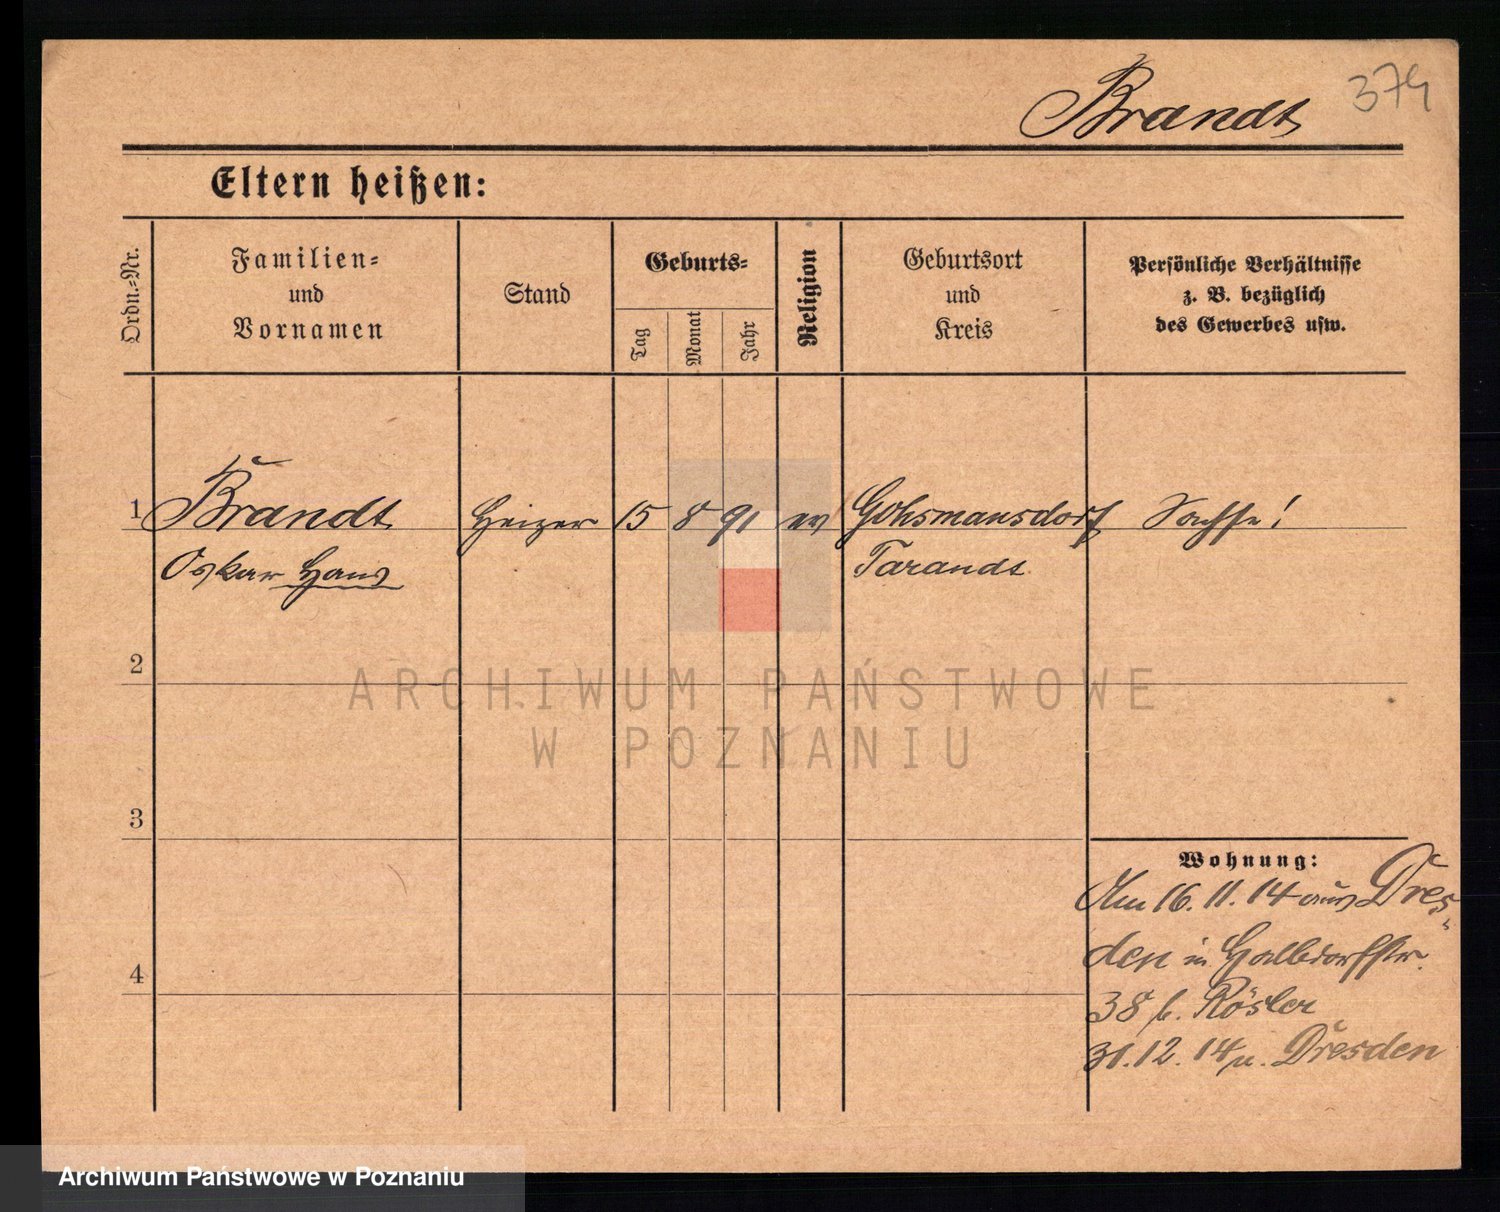 Brandt 374
Eltern heißen:
Ordn.-Nr.
Familien-
und
Vornamen
Stand
Geburts-
Tag
Monat
Jahr
Religion
Geburtsort
und
Kreis
Persönliche Verhältnisse
z. B. bezüglich
des Gewerbes usw.
1 Brandt Heizer 15 8 91 ev Gohsmansdorf Sachse!
Oskar Hans Tarandt
2
ARCHIWUM PAŃSTWOWE
W POZNANIU
3
Wohnung:
Am 16.11.14 aus Dres-
den in Halbdorfstr.
38 b. Rösler
4
31.12.14 n. Dresden
Archiwum Państwowe w Poznaniu